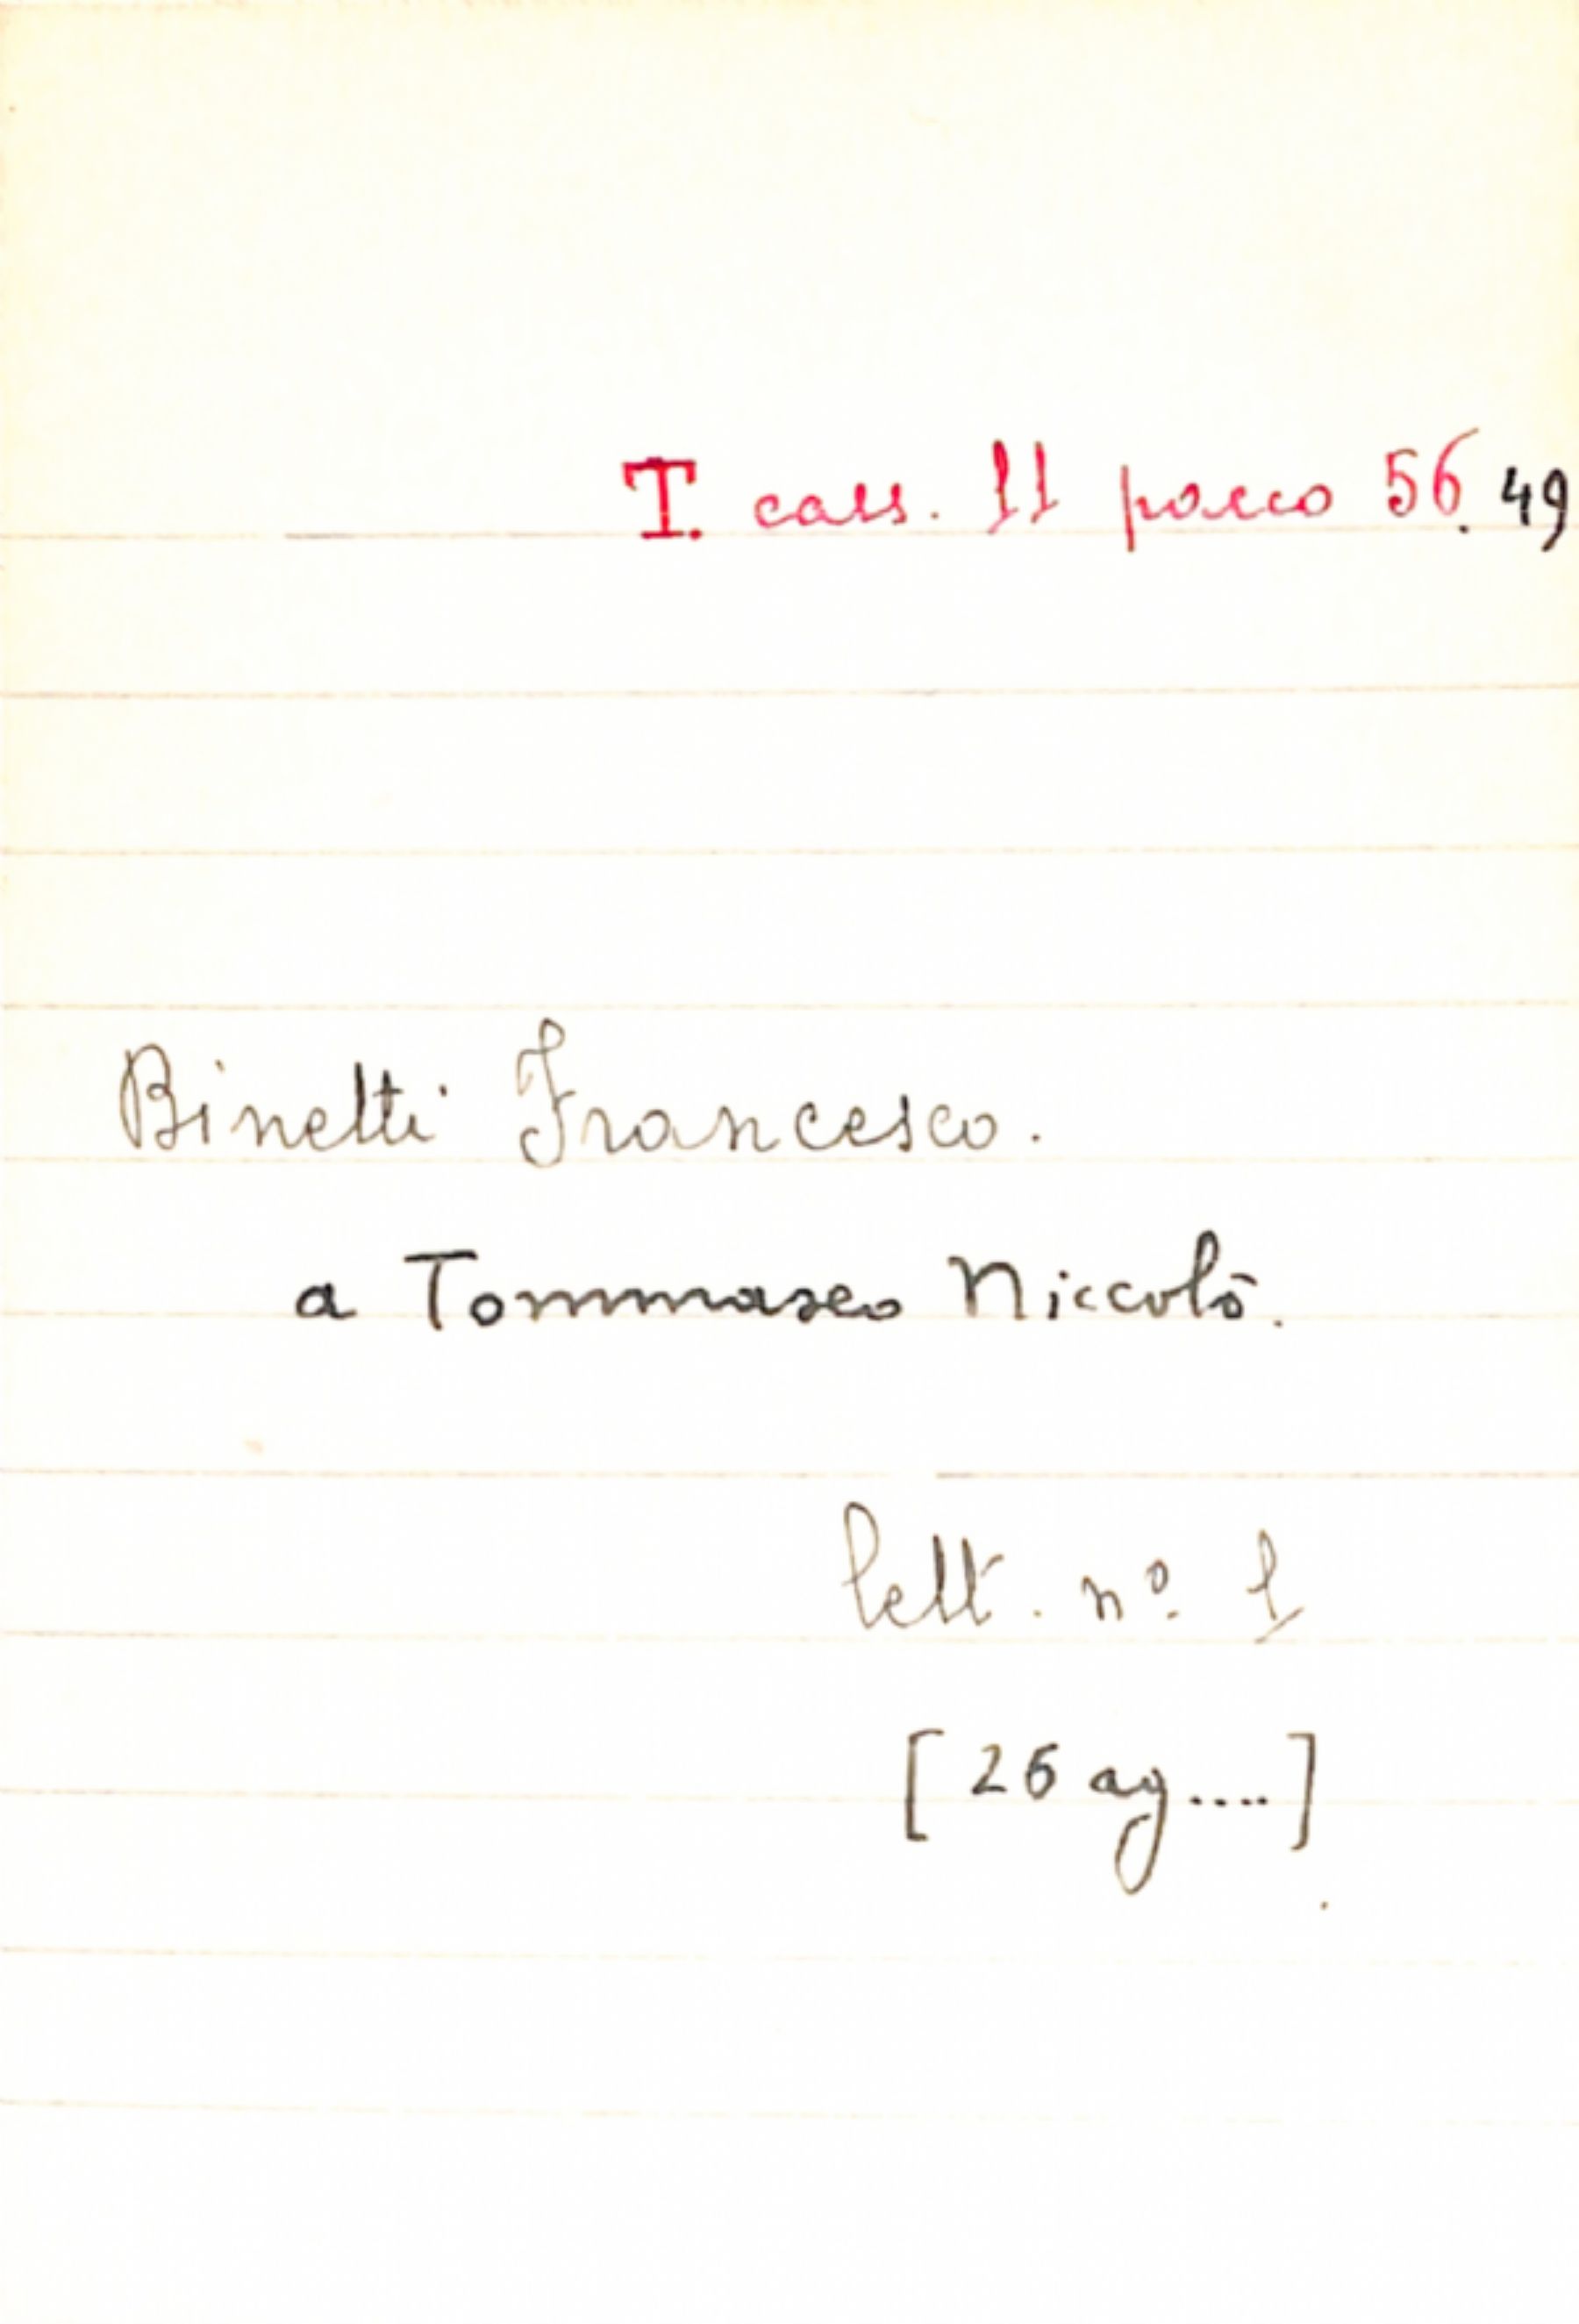 T. cass. 11 pacco 56. 49
Binetti Francesco.
a Tommaseo Niccolò.
lett. nº 1
[26 ag....]